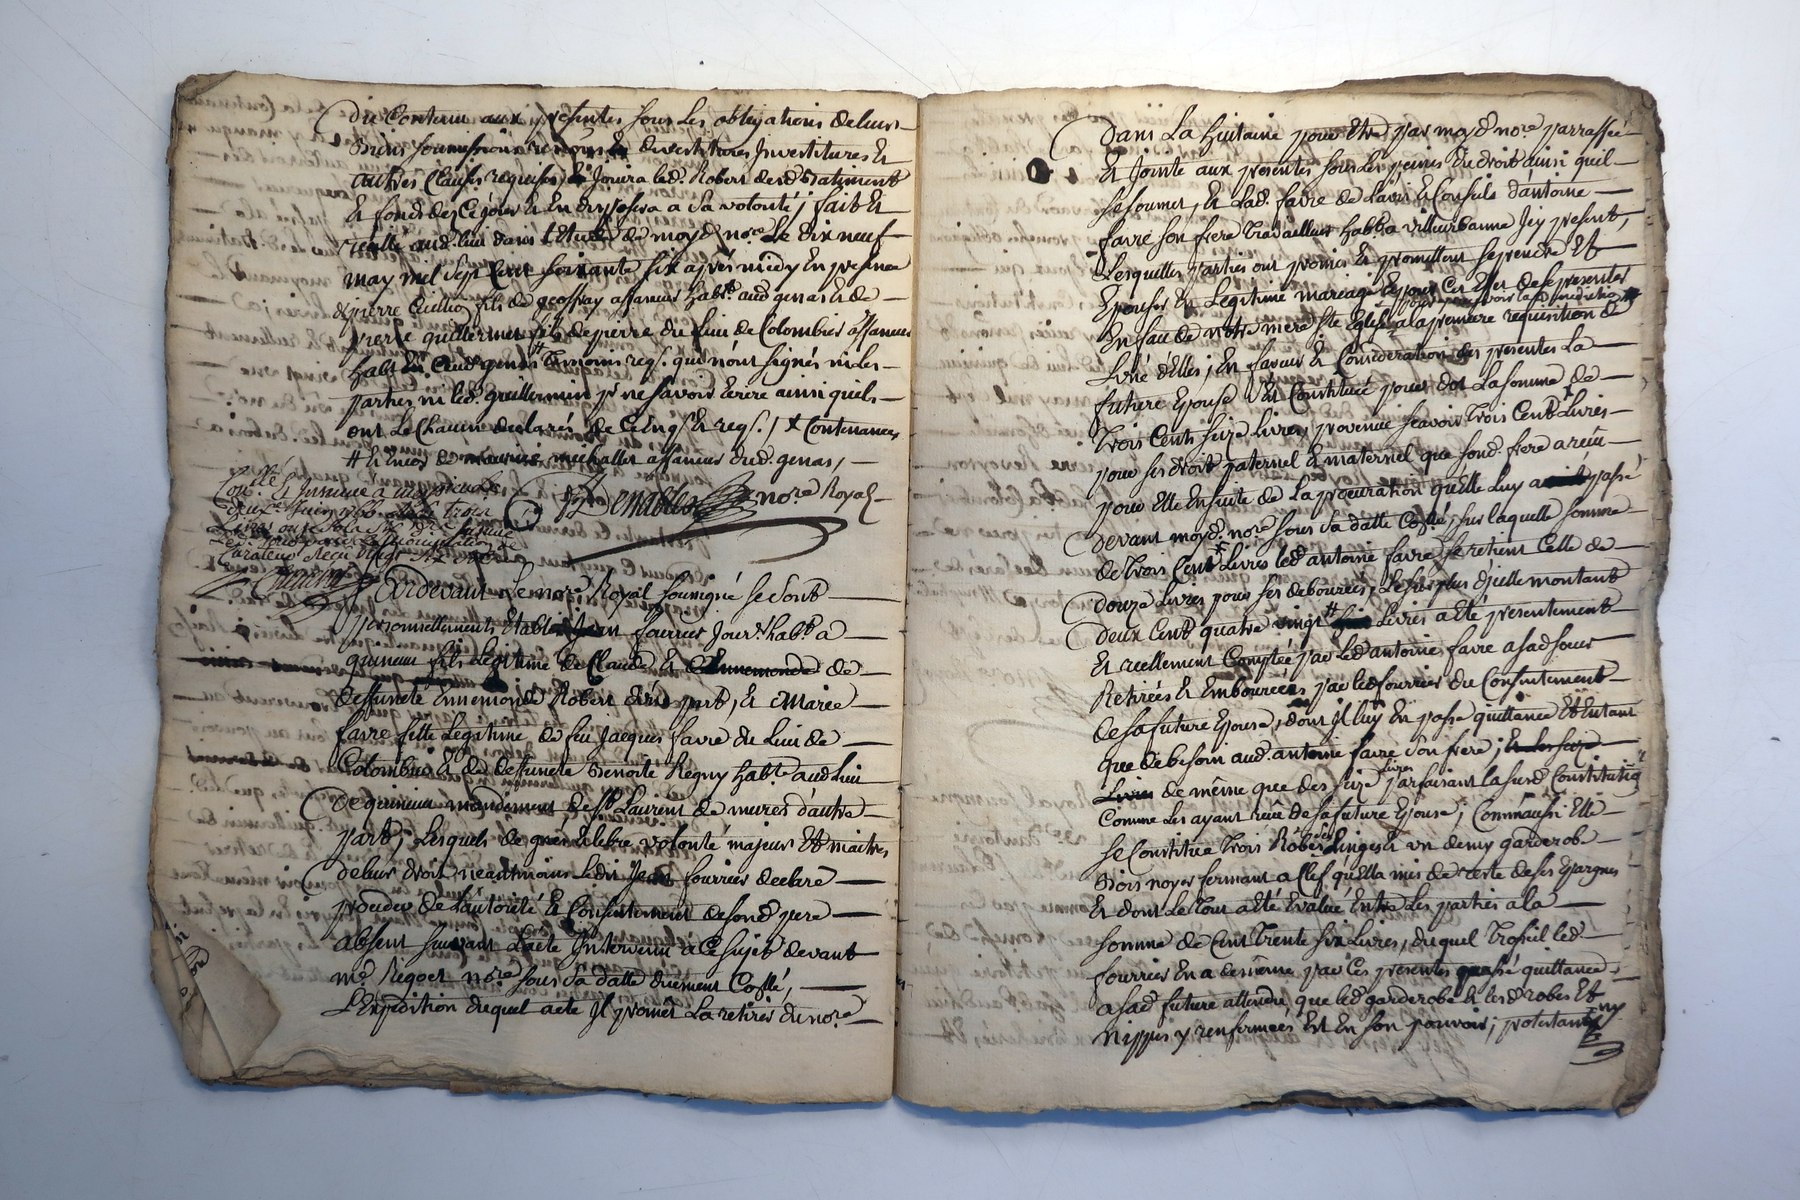 du Contenu aux presentes sous Les obligations de leurs
Biens soumissions devestitures Investitures Et
autres Clauses requises, Jouira led. Robert desd. Batiment
Et fonds dez Ce jour Et En disposera a sa volonté; fait Et
aud. lieu dans L'Etude de moyd. nore. Le dix neuf
may mil sept Cent soixante six après midy En presence
de pierre fils de geoffray affaneur habt. aud. genas Et de
pierre guillermin fils de pierre du Lieu de Colombier affaneur
habt. aud. genas # Temoins reqs. qui n'ont signés ni les
parties ni led. guillermin pr. ne savoir Ecrire ainsi quils
ont Le Chacun declarés de Ce Enqs. Et reqs. / x Contenances
# Et Encor de maurice michallet affaneur dud. genas, —
nore Royal
Conllé. Et Insinué a
deux juin 1766. Reçu trois
Livres
Pardevant Le nore Royal soussigné se sont
personnellements Etablis Jean fourrier Jour. habt. a
quinieu fils Legitime de Claude Et de
deffuncte Ennemonde Robert d'une part, Et Marie
favre fille Legitime de feu Jacques favre du Lieu de
Colombier Et de deffuncte Benoite Regny habte. aud. Lieu
de quinieu mandement de St. Laurent de mures d'autre
part; Lesquels de gré Et Libre volonté majeurs Et maitres
de leurs droits neantmoins Ledit Jean fourrier declare
proceder de L'autorité Et Consentement de sond. pere
absent suivant L'acte Intervenu a Ce sujet devant
me. Regoet nore. sous sa datte duement Coñllé,
L'Expedition duquel acte Il promet La retirer dud. nore.
dans La huitaine pour Etre par moyd. nore. parraffée
Et Jointe aux presentes sous Les peines du droit ainsi quil
se soumet, Et Lad. favre de L'avis Et Conseils d'antoine
favre son frere Travailleur habt. a villeurbanne Icy present,
Lesquelles parties ont promis Et promettent se prendre Et
Epouser En Legitime mariage
En face de notre mere Ste. Eglise a la premiere requisition de
L'une d'Elles; En faveur Et Consideration des presentes La
future Epouse s'Est Constituée pour dot La somme de
Trois Cents seize Livres, provenue sçavoir trois Cents Livres
pour ses droits paternel Et maternel que sond. frere a reçu
pour Elle Ensuite de La procuration qu'Elle Luy a passé
devant moyd. nore. sous sa datte Coñllé, sur laquelle somme
de Trois Cent Livres led. antoine favre se retient Celle de
douze Livres pour ses debourcées, Le surplus d'jcelle montant
deux Cent quatre vingt # Livres a Eté presentement
Et reellement Comptée par Led. antoine favre a sad. soeur
Retirées Et Embourcées par led. fourrier du Consentement
de sa future Epouse, dont Il luy En passe quittance Et En tant
que de besoin aud. antoine favre son frere;
de même que des seize Livres parfaisant la susd. Constitution
Comme Les ayant reçu de sa future Epouse; Comm'aussi Elle
se Constitue Trois Robes Linges Et un demy garderobe
Bois noyer fermant a Clef qu'Ella mis de reste de ses Epargnes
Et dont Le Tout a Eté Evalué Entre Les parties a la
somme de Cent Trente six Livres, duquel Trosseil led.
fourrier En a de même par Ces presentes passé quittance
a sad. future attendu que led. garderobe Et lesd. robes Et
nippes y renfermées Est En son pouvoir; protestants